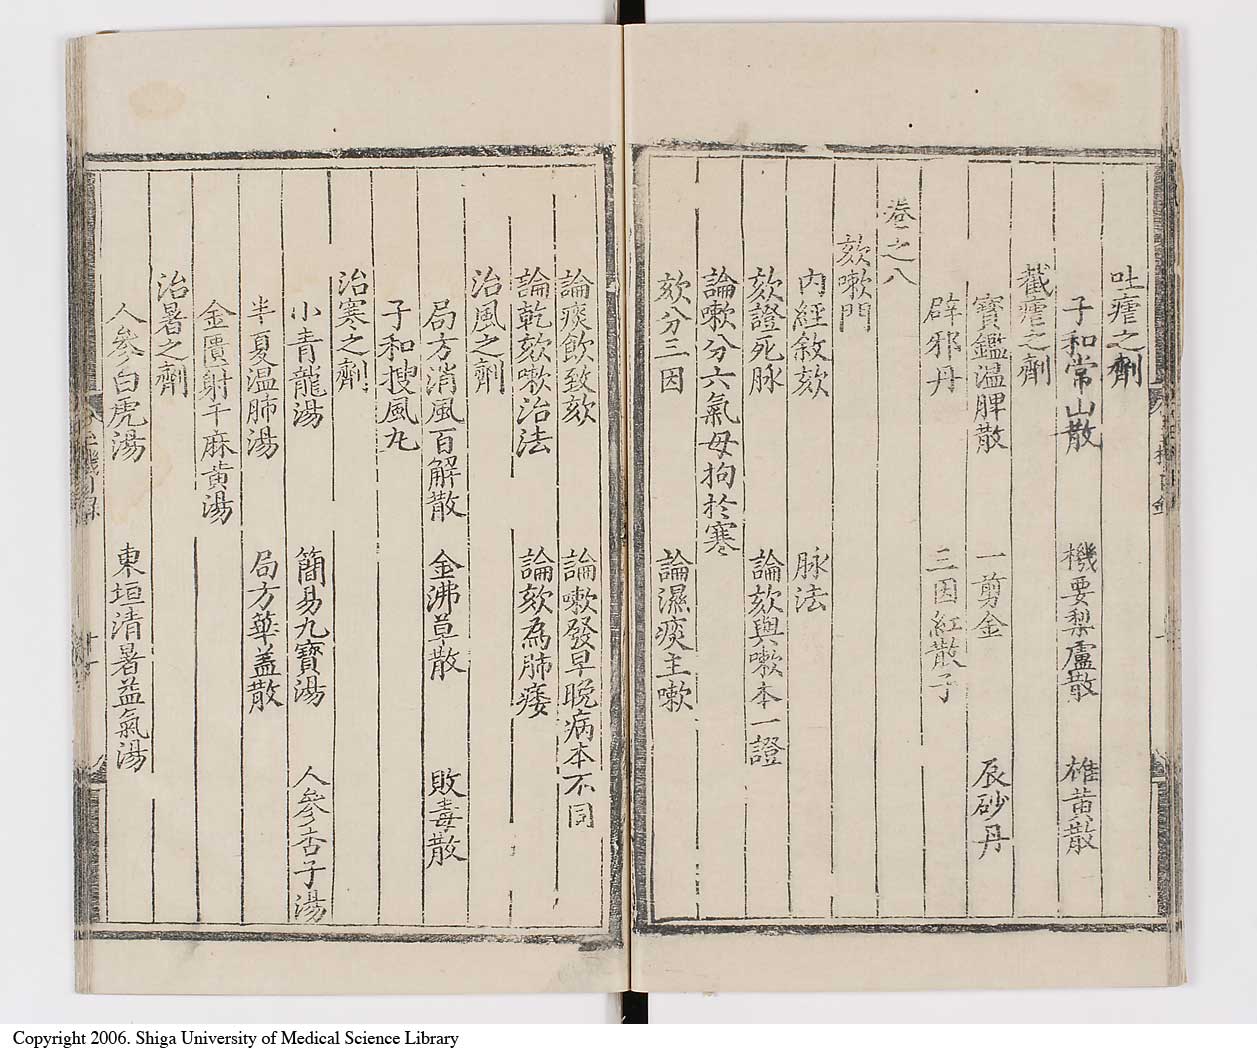 吐瘧之劑
子和常山散 機要梨蘆散 雄黄散
截瘧之劑
寶鑑温脾散 一剪金 辰砂丹
辟邪丹 三因紅散子
卷之八
欬嗽門
内經敘欬 脉法
欬證死脉 論欬與嗽本一證
論嗽分六氣毋拘於寒
欬分三因 論濕痰主嗽
論痰飲致欬 論嗽發早晚病本不同
論乾欬嗽治法 論欬為肺痿
治風之劑
局方消風百解散 金沸草散 敗毒散
子和搜風丸
治寒之劑
小青龍湯 簡易九寶湯 人參杏子湯
半夏温肺湯 局方華盖散
金匱射干麻黄湯
治暑之劑
人參白虎湯 東垣清暑益氣湯
Copyright 2006. Shiga University of Medical Science Library